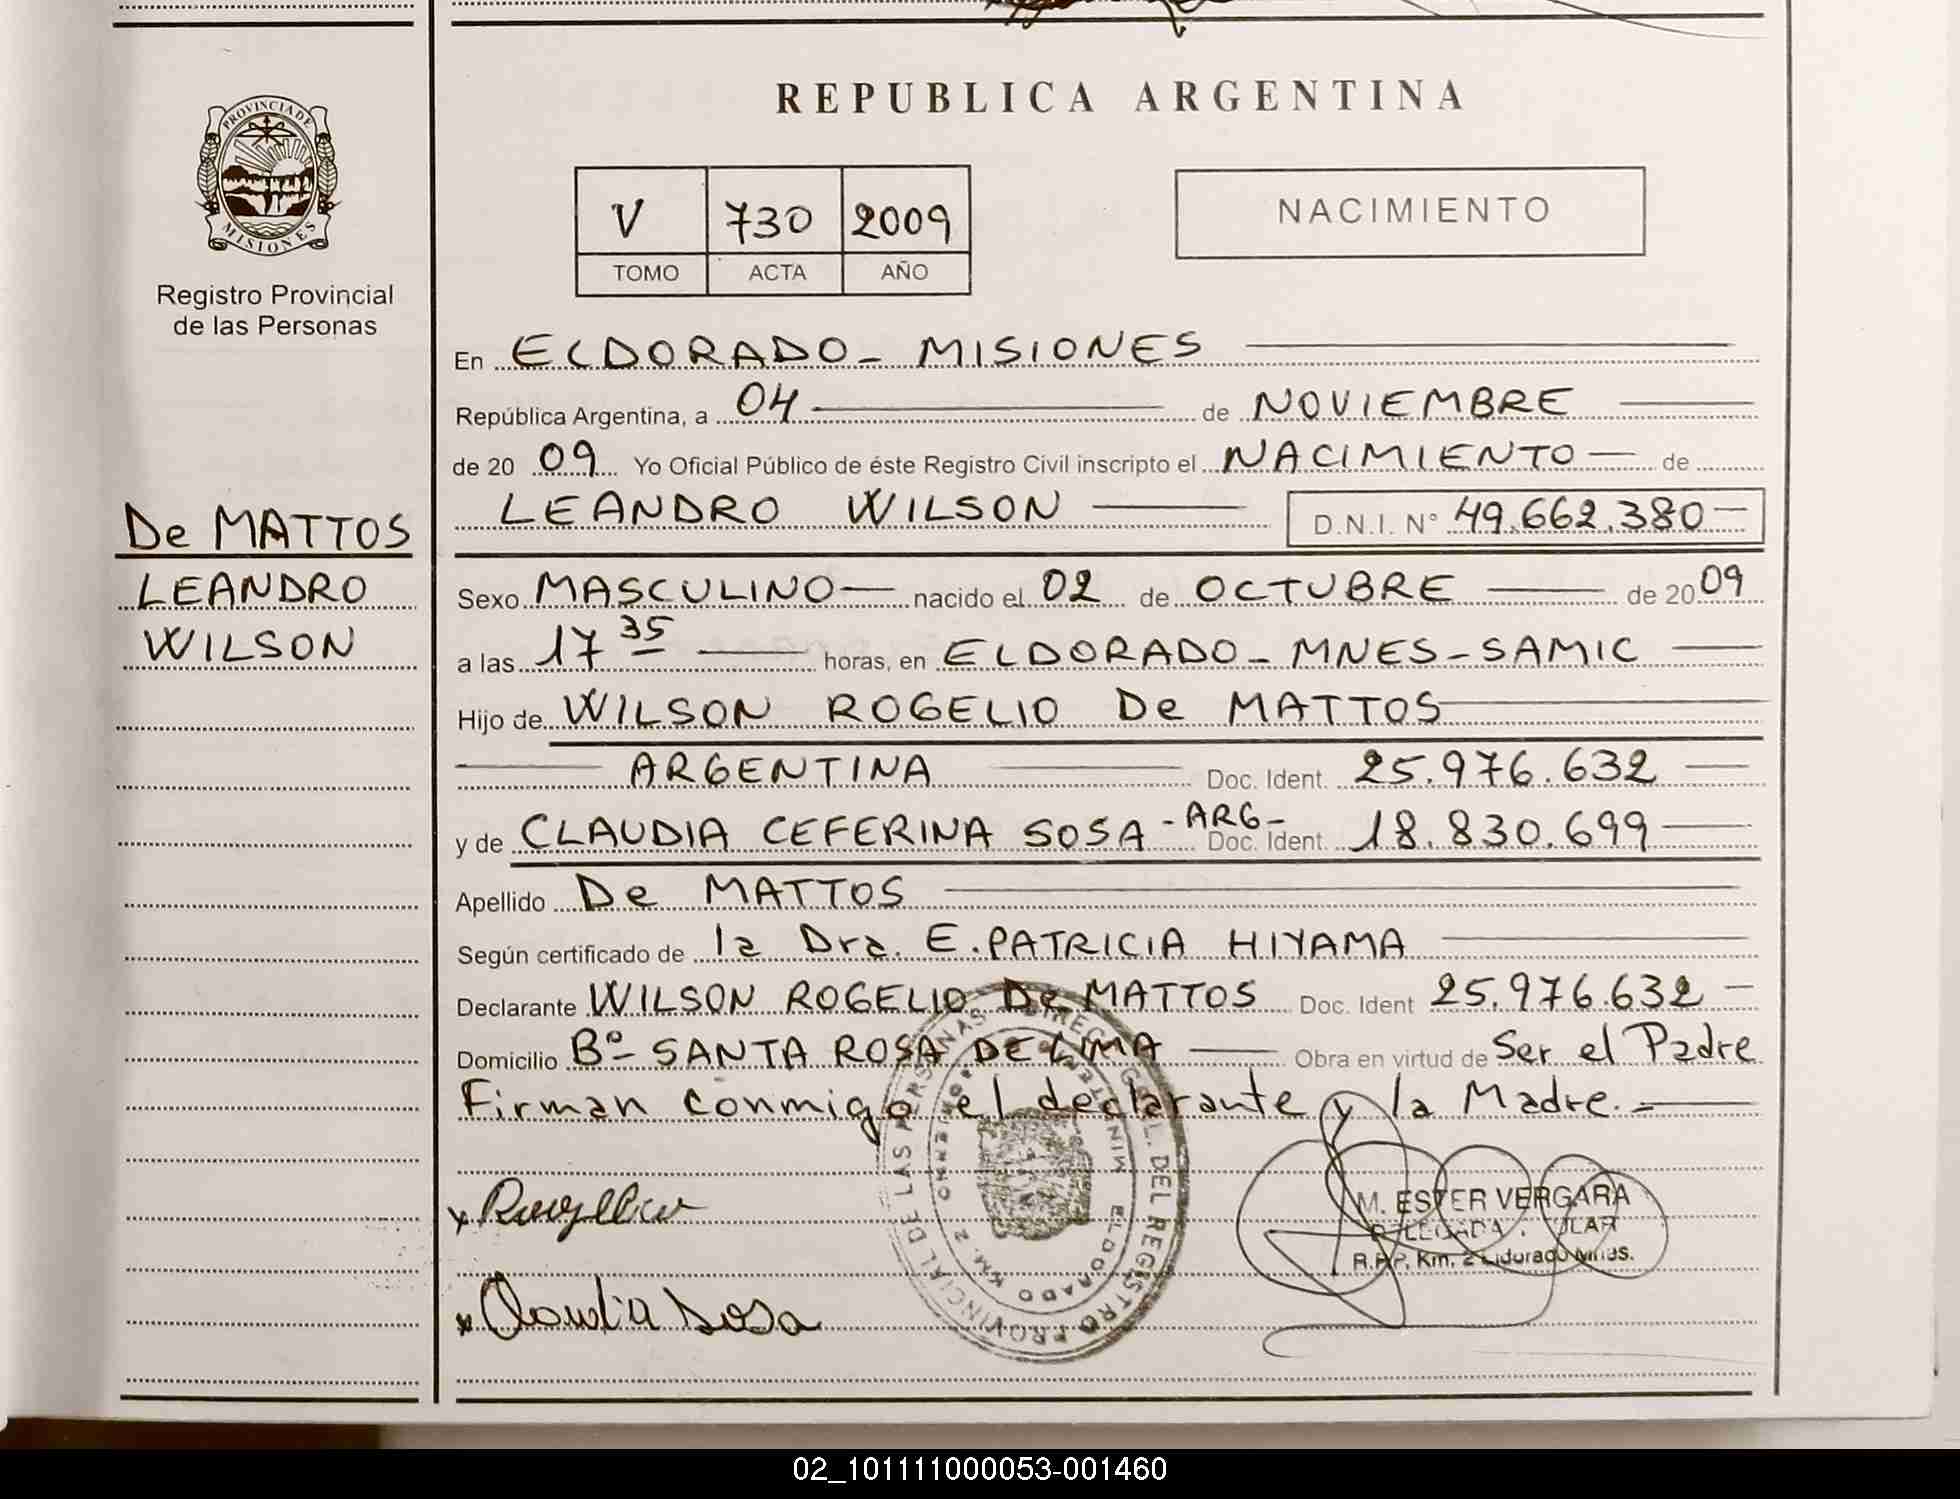 REPUBLICA ARGENTINA
PROVINCIA DE
MISIONES
Registro Provincial
de las Personas
V 730 2009
TOMO ACTA AÑO
NACIMIENTO
En ELDORADO - MISIONES
República Argentina, a 04 de NOVIEMBRE
de 20 09 Yo Oficial Público de éste Registro Civil inscripto el NACIMIENTO de
LEANDRO WILSON D.N.I. N° 49.662.380
De MATTOS
LEANDRO
WILSON
Sexo MASCULINO nacido el 02 de OCTUBRE de 2009
a las 17 35 horas, en ELDORADO - MNES - SAMIC
Hijo de WILSON ROGELIO De MATTOS
ARGENTINA Doc. Ident. 25.976.632
y de CLAUDIA CEFERINA SOSA - ARG - Doc. Ident. 18.830.699
Apellido De MATTOS
Según certificado de la Dra. E. PATRICIA HIYAMA
Declarante WILSON ROGELIO De MATTOS Doc. Ident 25.976.632
Domicilio B° - SANTA ROSA DE LIMA Obra en virtud de Ser el Padre
Firman conmigo el declarante y la Madre. -
Claudia Sosa
M. ESTER VERGARA
R.P.P. Km. 2 Eldorado Mnes.
DIREC. GRAL. DEL REGISTRO PROVINCIAL DE LAS PERSONAS
ELDORADO KM. 2
02_101111000053-001460